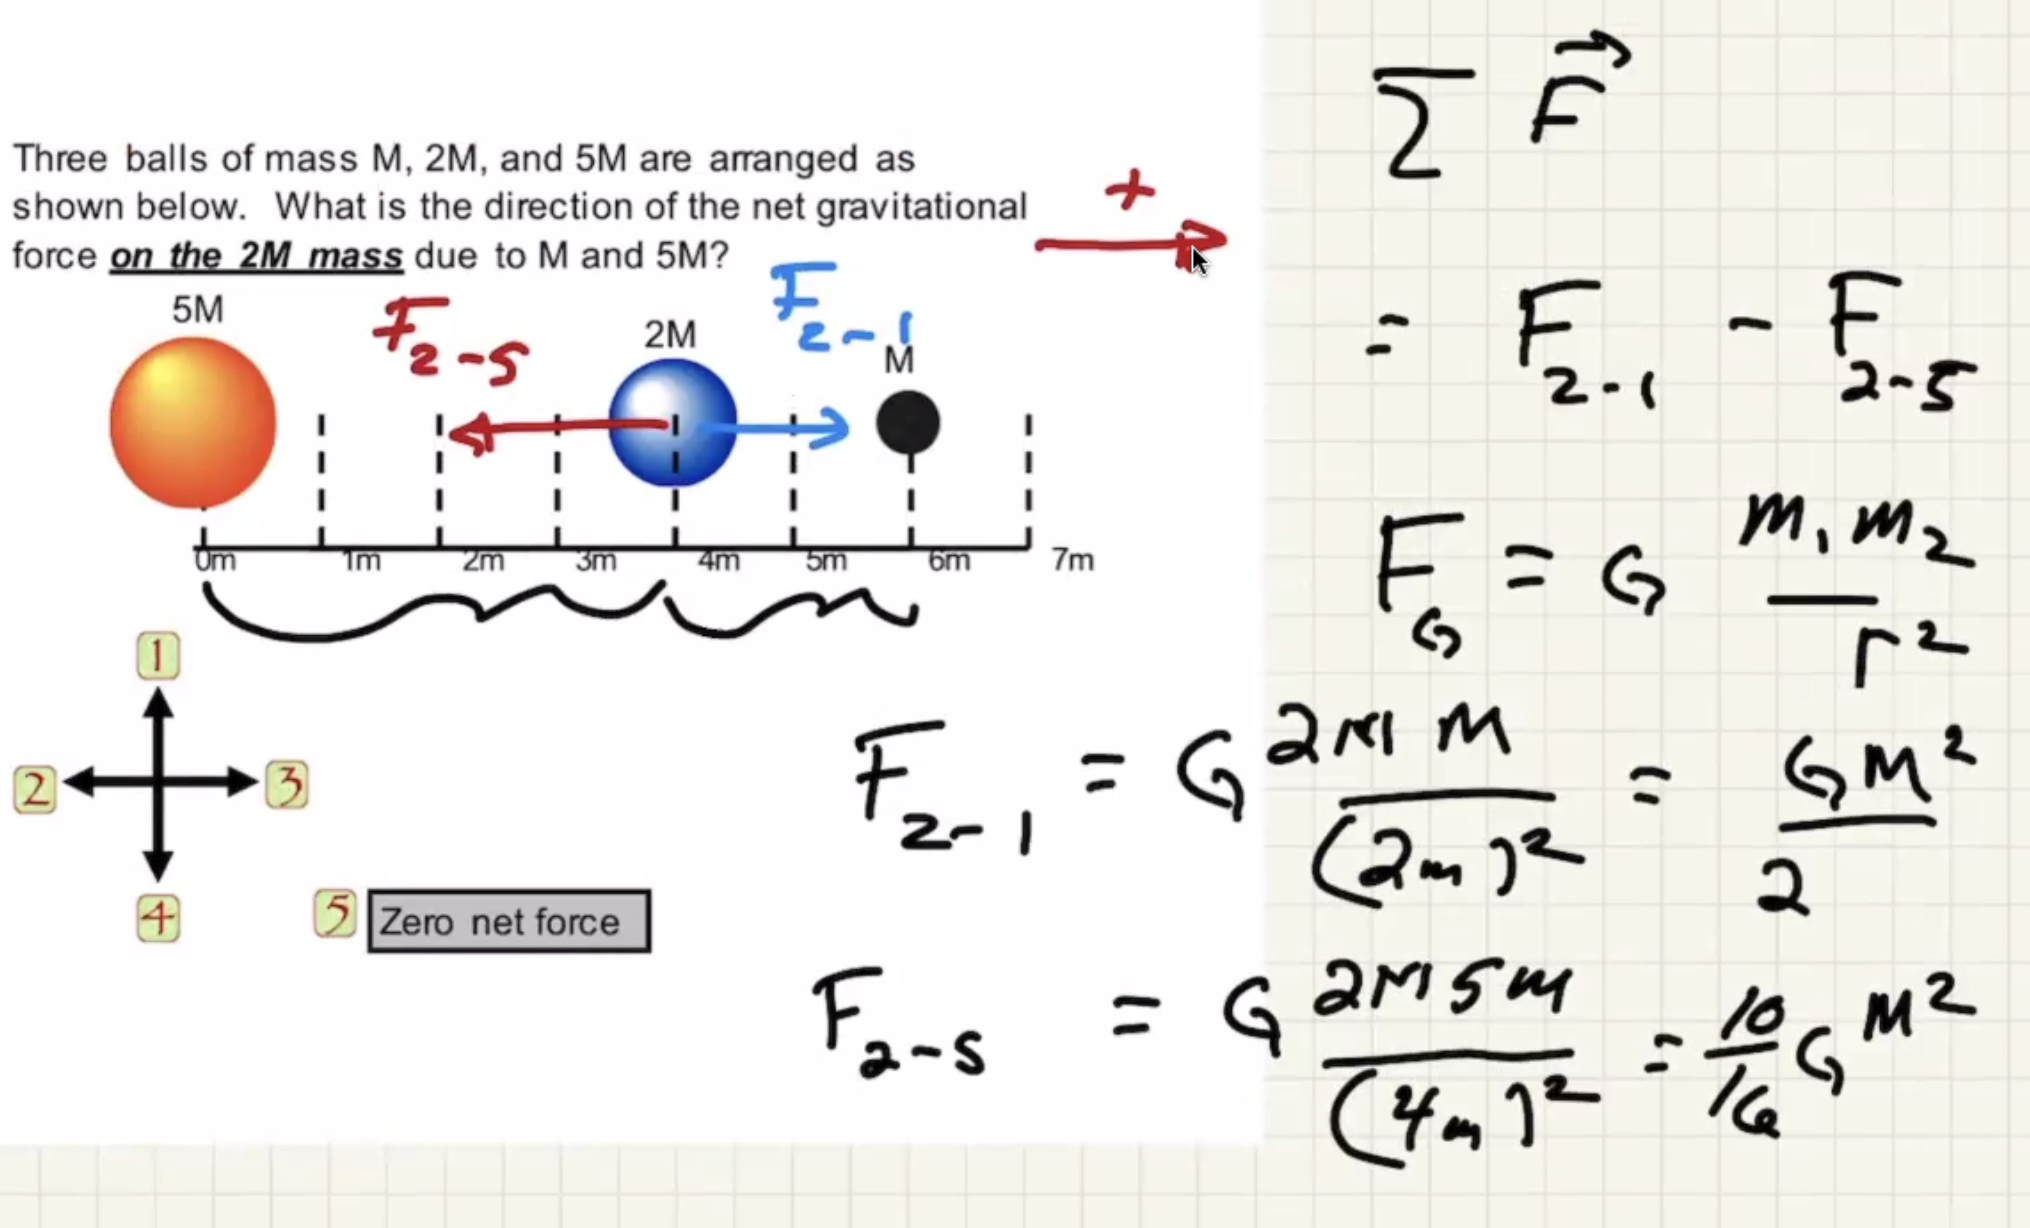 Σ F⃗
Three balls of mass M, 2M, and 5M are arranged as
shown below. What is the direction of the net gravitational
force on the 2M mass due to M and 5M?
+
5M
F₂₋₅
2M
F₂₋₁
M
= F₂₋₁ - F₂₋₅
0m 1m 2m 3m 4m 5m 6m 7m
F_G = G m₁m₂ / r²
1
2
3
4
5 Zero net force
F₂₋₁ = G 2M M / (2m)² = GM² / 2
F₂₋₅ = G 2M 5M / (4m)² = 10/16 G M²